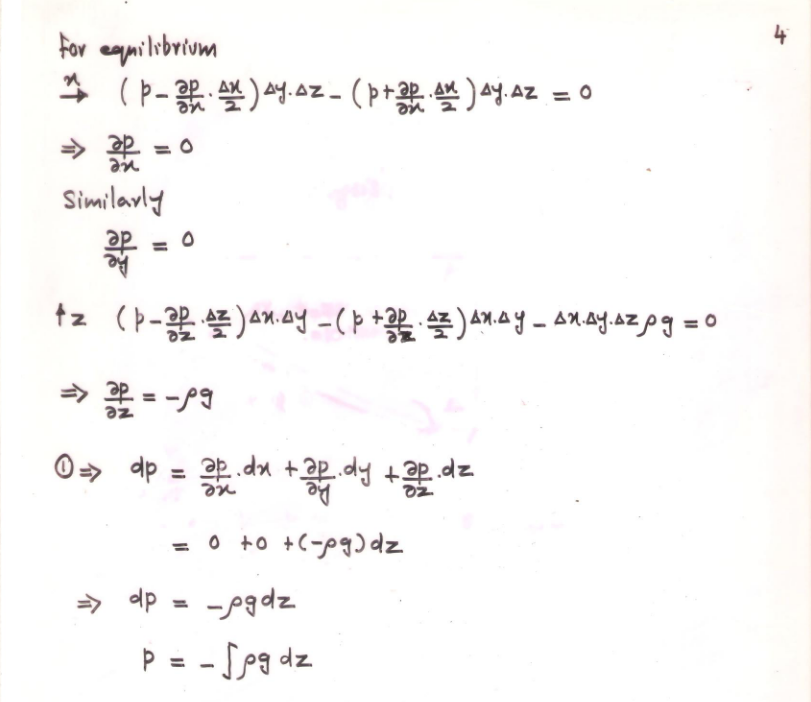 4
For equilibrium
→x (p - ∂p/∂x · Δx/2) Δy.Δz - (p + ∂p/∂x · Δx/2) Δy.Δz = 0
⇒ ∂p/∂x = 0
Similarly
∂p/∂y = 0
↑z (p - ∂p/∂z · Δz/2) Δx.Δy - (p + ∂p/∂z · Δz/2) Δx.Δy - Δx.Δy.Δz ρg = 0
⇒ ∂p/∂z = -ρg
① ⇒ dp = ∂p/∂x · dx + ∂p/∂y · dy + ∂p/∂z · dz
= 0 + 0 + (-ρg) dz
⇒ dp = -ρg dz
p = - ∫ ρg dz